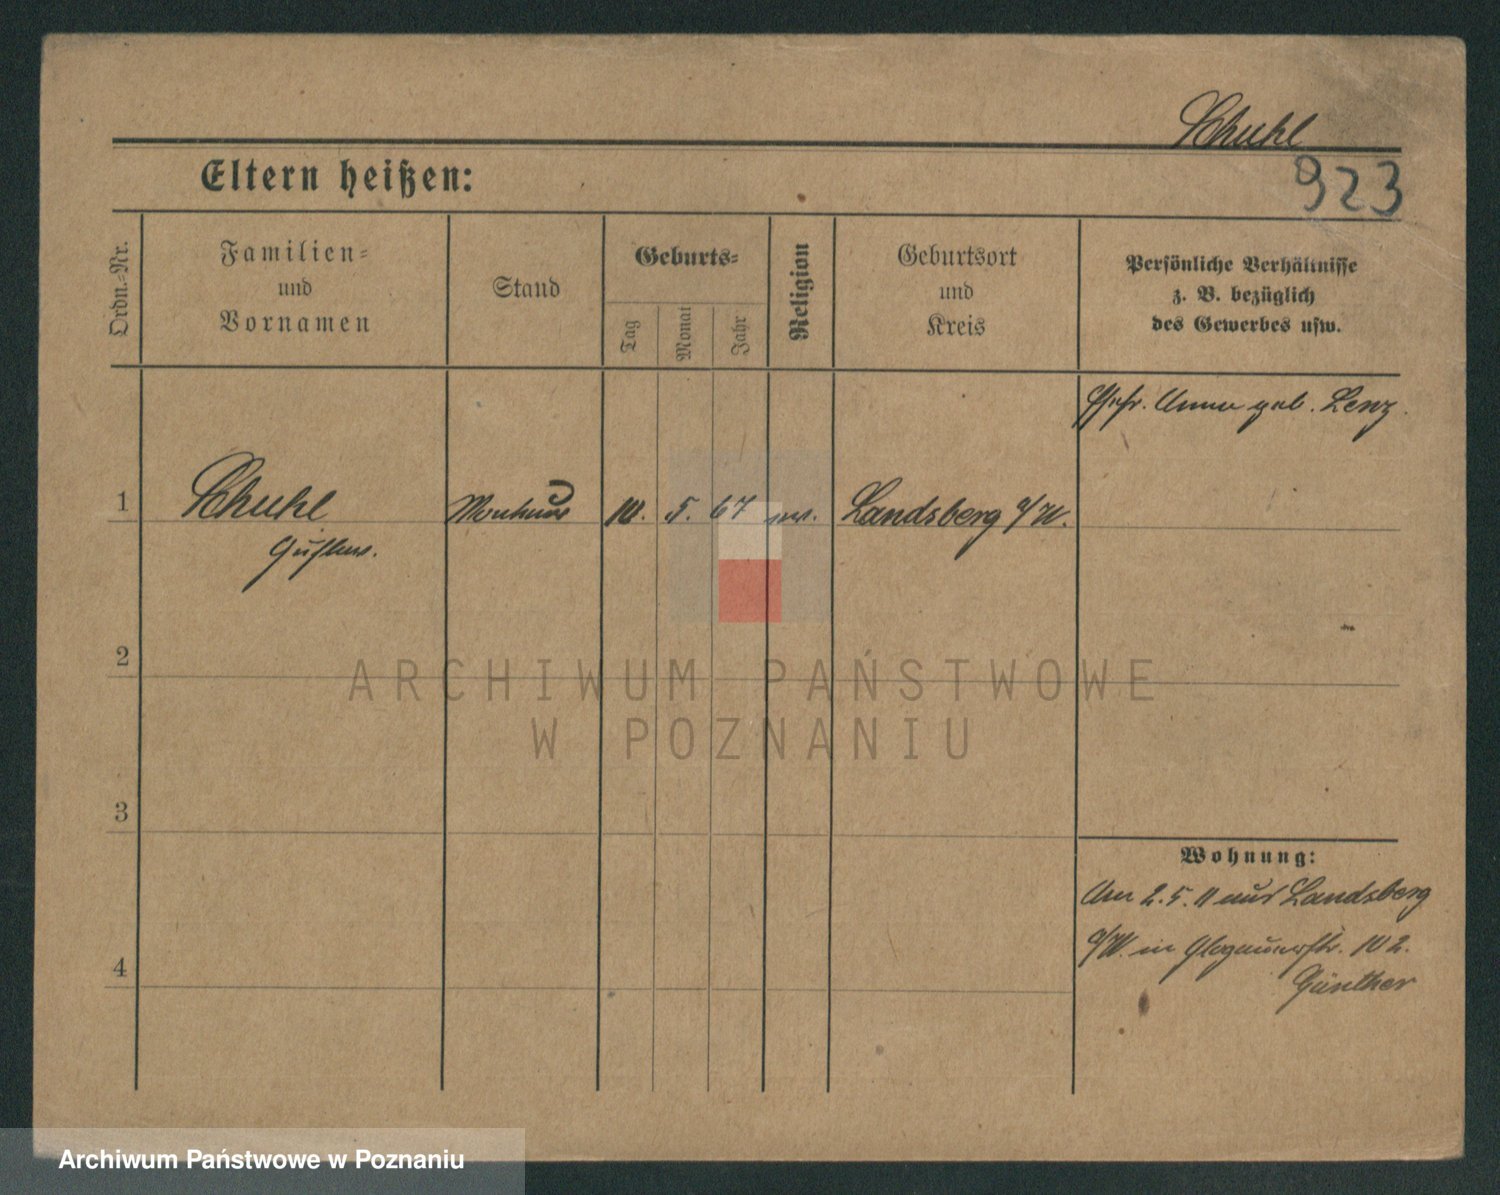 Schuhl
923
Eltern heißen:
Ordn.-Nr.
Familien-
und
Vornamen
Stand
Geburts-
Tag
Monat
Jahr
Religion
Geburtsort
und
Kreis
Persönliche Verhältnisse
z. B. bezüglich
des Gewerbes usw.
Ehefr. Anna geb. Lenz.
1
Schuhl
Monteur
10. 5. 67
ev.
Landsberg a/W.
Gustav.
2
ARCHIWUM PAŃSTWOWE
W POZNANIU
3
Wohnung:
Am 2. 5. 11 aus Landsberg
a/W. in Glogauerstr. 102.
4
Günther
Archiwum Państwowe w Poznaniu